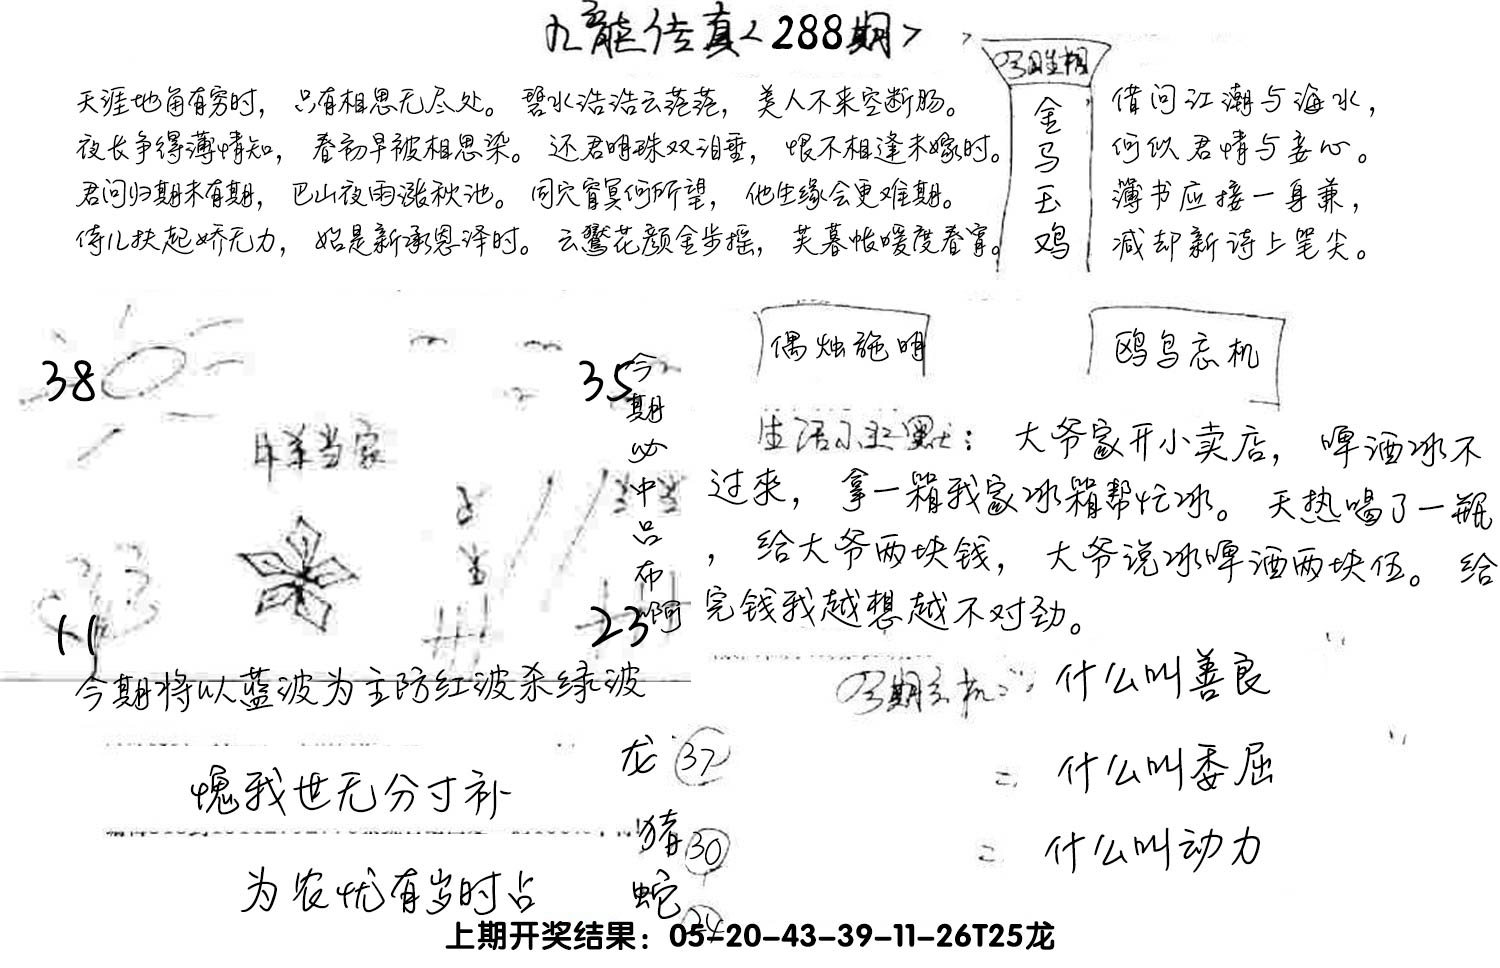 九龙传真<288期>
天涯地角有穷时，只有相思无尽处。碧水浩浩云茫茫，美人不来空断肠。
夜长争得薄情知，春初早被相思染。还君明珠双泪垂，恨不相逢未嫁时。
君问归期未有期，巴山夜雨涨秋池。同穴窅冥何所望，他生缘会更难期。
侍儿扶起娇无力，始是新承恩泽时。云鬓花颜金步摇，芙蓉帐暖度春宵。
今期生相
金
马
玉
鸡
借问江潮与海水，
何似君情与妾心。
薄书应接一身兼，
减却新诗上笔尖。
38
35
牛羊当家
11
23
今
期
必
中
吕
布
啊
今期将以蓝波为主防红波杀绿波
愧我世无分寸补
为农忧有岁时占
龙 37
猪 30
蛇 24
偶烛施明
鸥鸟忘机
生活小幽默：大爷家开小卖店，啤酒冰不
过来，拿一箱我家冰箱帮忙冰。天热喝了一瓶
，给大爷两块钱，大爷说冰啤酒两块伍。给
完钱我越想越不对劲。
今期玄机： 什么叫善良
什么叫委屈
什么叫动力
上期开奖结果：05-20-43-39-11-26T25龙